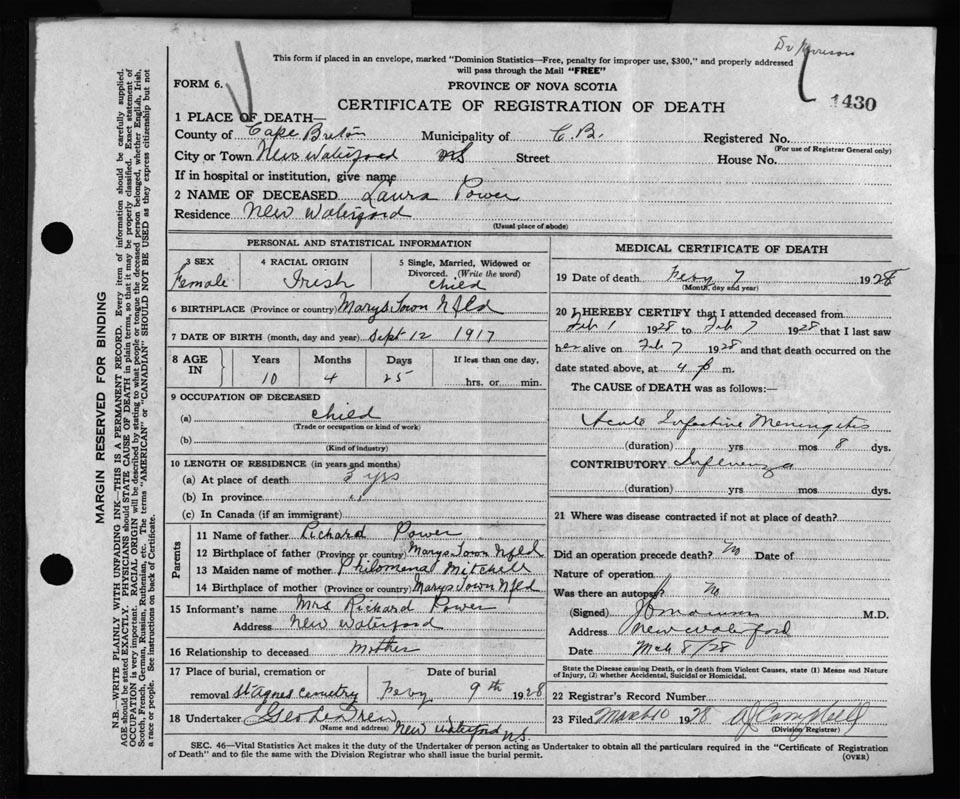 This form if placed in an envelope, marked "Dominion Statistics—Free, penalty for improper use, $300," and properly addressed
will pass through the Mail "FREE"
FORM 6.
PROVINCE OF NOVA SCOTIA
CERTIFICATE OF REGISTRATION OF DEATH
1430
1 PLACE OF DEATH—
County of Cape Breton Municipality of C.B. Registered No.
(For use of Registrar General only)
City or Town New Waterford NS Street House No.
If in hospital or institution, give name
2 NAME OF DECEASED Laura Power
Residence New Waterford
(Usual place of abode)
PERSONAL AND STATISTICAL INFORMATION
3 SEX Female
4 RACIAL ORIGIN Irish
5 Single, Married, Widowed or Divorced. (Write the word) child
6 BIRTHPLACE (Province or country) Marys Town Nfld
7 DATE OF BIRTH (month, day and year) Sept 12 1917
8 AGE IN Years Months Days If less than one day,
10 4 25 hrs. or min.
9 OCCUPATION OF DECEASED
(a) child
(Trade or occupation or kind of work)
(b)
(Kind of industry)
10 LENGTH OF RESIDENCE (in years and months)
(a) At place of death 3 yrs
(b) In province "
(c) In Canada (if an immigrant)
Parents
11 Name of father Richard Power
12 Birthplace of father (Province or country) Marys Town Nfld
13 Maiden name of mother Philomena Mitchell
14 Birthplace of mother (Province or country) Marys Town Nfld
15 Informant's name Mrs Richard Power
Address New Waterford
16 Relationship to deceased Mother
17 Place of burial, cremation or removal St Agnes Cemetry
Date of burial Feby 9th 1928
18 Undertaker
(Name and address) New Waterford N.S.
MEDICAL CERTIFICATE OF DEATH
19 Date of death Feby 7 1928
(Month, day and year)
20 I HEREBY CERTIFY that I attended deceased from
Feb 1 1928 to Feb 7 1928 that I last saw
her alive on Feb 7 1928 and that death occurred on the
date stated above, at 4 p m.
The CAUSE of DEATH was as follows:—
Acute Infective Meningitis
(duration) yrs mos 8 dys.
CONTRIBUTORY Influenza
(duration) yrs mos dys.
21 Where was disease contracted if not at place of death?
Did an operation precede death? No Date of
Nature of operation
Was there an autopsy No
(Signed) M.D.
Address New Waterford
Date Mch 8/28
State the Disease causing Death, or in death from Violent Causes, state (1) Means and Nature
of Injury, (2) whether Accidental, Suicidal or Homicidal.
22 Registrar's Record Number
23 Filed March 10 1928
(Division Registrar)
SEC. 46—Vital Statistics Act makes it the duty of the Undertaker or person acting as Undertaker to obtain all the particulars required in the "Certificate of Registration
of Death" and to file the same with the Division Registrar who shall issue the burial permit.
(OVER)
MARGIN RESERVED FOR BINDING
N.B.—WRITE PLAINLY WITH UNFADING INK—THIS IS A PERMANENT RECORD. Every item of information should be carefully supplied.
AGE should be stated EXACTLY. PHYSICIANS should STATE CAUSE OF DEATH in plain terms, so that it may be properly classified. Exact statement of
OCCUPATION is very important. RACIAL ORIGIN will be described by stating to what people or tongue the deceased person belonged, whether English, Irish,
Scotch, French, German, Russian, Ruthenian, etc. The terms "AMERICAN" or "CANADIAN" SHOULD NOT BE USED as they express citizenship but not
a race or people. See instructions on back of Certificate.